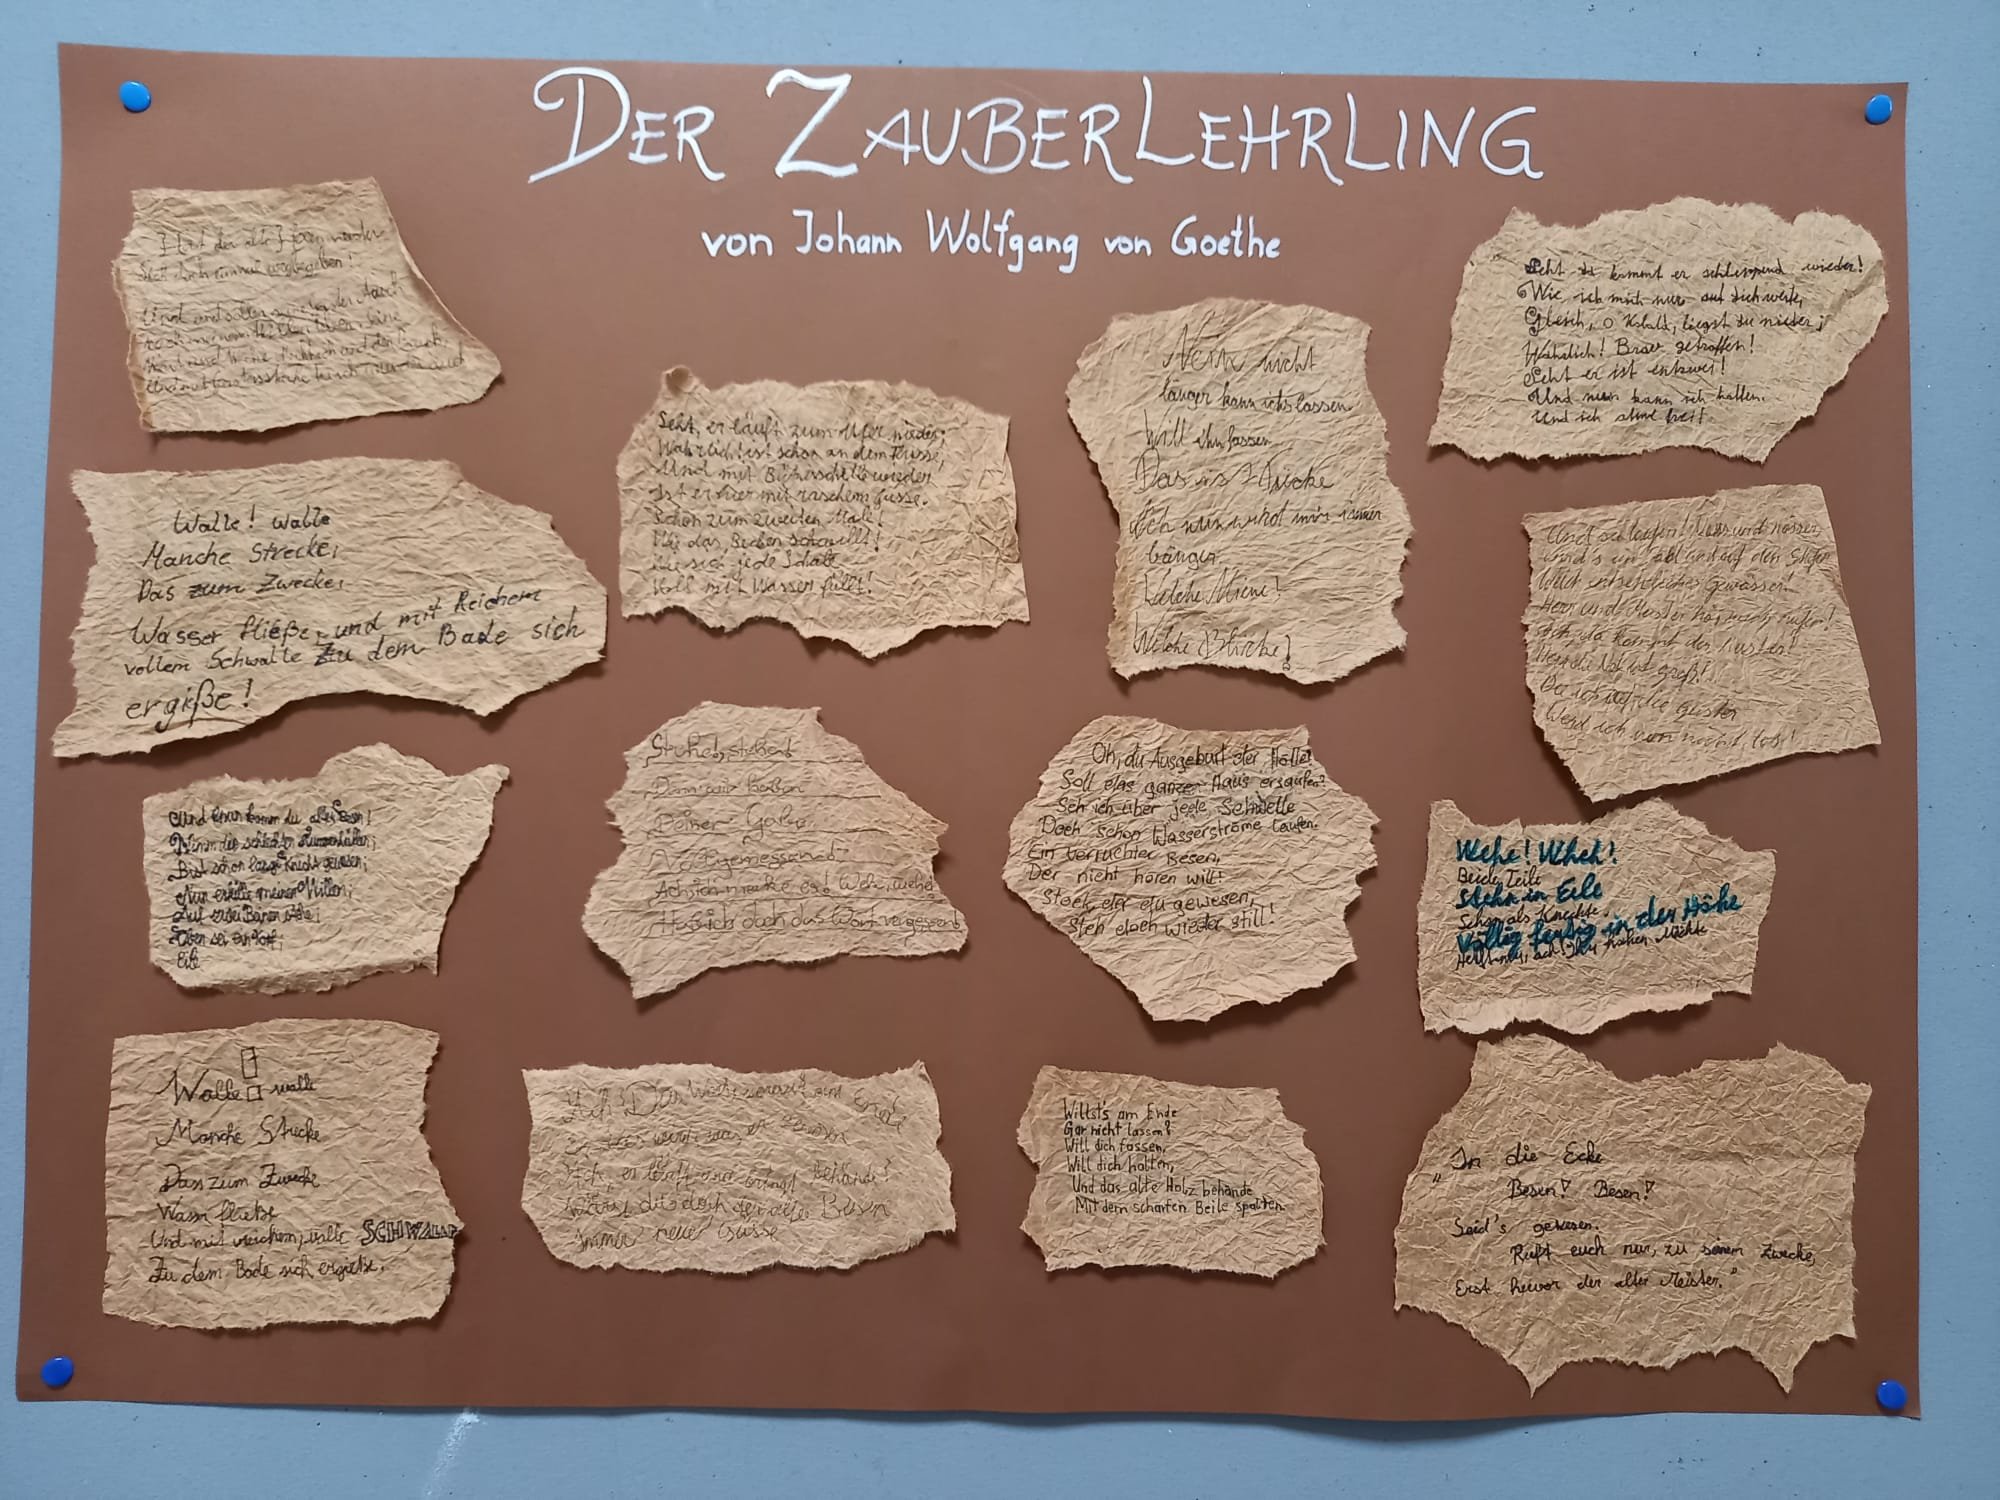 DER ZAUBERLEHRLING
von Johann Wolfgang von Goethe
Hat der alte Hexenmeister
Sich doch einmal wegbegeben!
Walle! walle
Manche Strecke,
Das zum Zwecke,
Wasser fließe, und mit Reichem
vollem Schwalle Zu dem Bade sich
ergieße!
Und nun komm du alter Besen!
Nimm die schlechten Lumpenhüllen;
Bist schon lange Knecht gewesen;
Nun erfülle meinen Willen;
Auf zwei Beinen stehe;
Oben sei ein Kopf;
Eile
Walle! walle
Manche Strecke
Dass zum Zwecke
Wasser fließe
Und mit reichem, volle SCHWALLE
Zu dem Bade sich ergieße.
Seht, er läuft zum Ufer nieder;
Wahrlich! ist schon an dem Flusse,
Und mit Blitzesschelle wieder
Ist er hier mit raschem Gusse.
Schon zum zweiten Male!
Wie das Becken schwillt!
Wie sich jede Schale
Voll mit Wasser füllt!
Stehe!, stehe!
Denn wir haben
Deiner Gaben
Vollgemessen!
Ach ich merke es! Wehe, wehe!
Hab ich doch das Wort vergessen!
Ach! Das Wort, worauf am Ende
Er das wird was er gewesen
Ach, er läuft und bringt behände!
Wärst du doch der alte Besen
Immer neue Güsse
Nein nicht
länger kann ichs lassen
Will ihn fassen
Das ist Tücke
Ach nun wird mir immer
bänger
Welche Miene!
Welche Blicke!
Oh, du Ausgeburt der Hölle!
Soll das ganze Haus ersaufen?
Seh ich über jede Schwelle
Doch schon Wasserströme laufen.
Ein verruchter Besen,
Der nicht hören will!
Stock, der du gewesen,
Steh doch wieder still!
Willst's am Ende
Gar nicht lassen?
Will dich fassen,
Will dich halten,
Und das alte Holz behände
Mit dem scharfen Beile spalten.
Seht da kommt er schleppend wieder!
Wie, ich mich nur auf dich werfe,
Gleich, o Kobold, liegst du nieder;
Wahrlich! Brav getroffen!
Seht er ist entzwei!
Und nun kann ich hoffen.
Und ich atme frei!
Und sie laufen! Nass und nässer
Wird's im Saal und auf den Stufen
Welch entsetzliches Gewässer!
Herr und Meister hör mich rufen!
Ach da kommt der Meister!
Herr die Not ist groß!
Die ich rief, die Geister
Werd ich nun nicht los!
Wehe! Wheh!
Beide Teile
Stehn in Eile
Schon als Knechte
Völlig fertig in der Höhe
Helft mir, ach! Ihr hohen Mächte
„In die Ecke
Besen! Besen!
Seid's gewesen.
Ruft euch nur, zu seinem Zwecke,
Erst hervor der alte Meister."